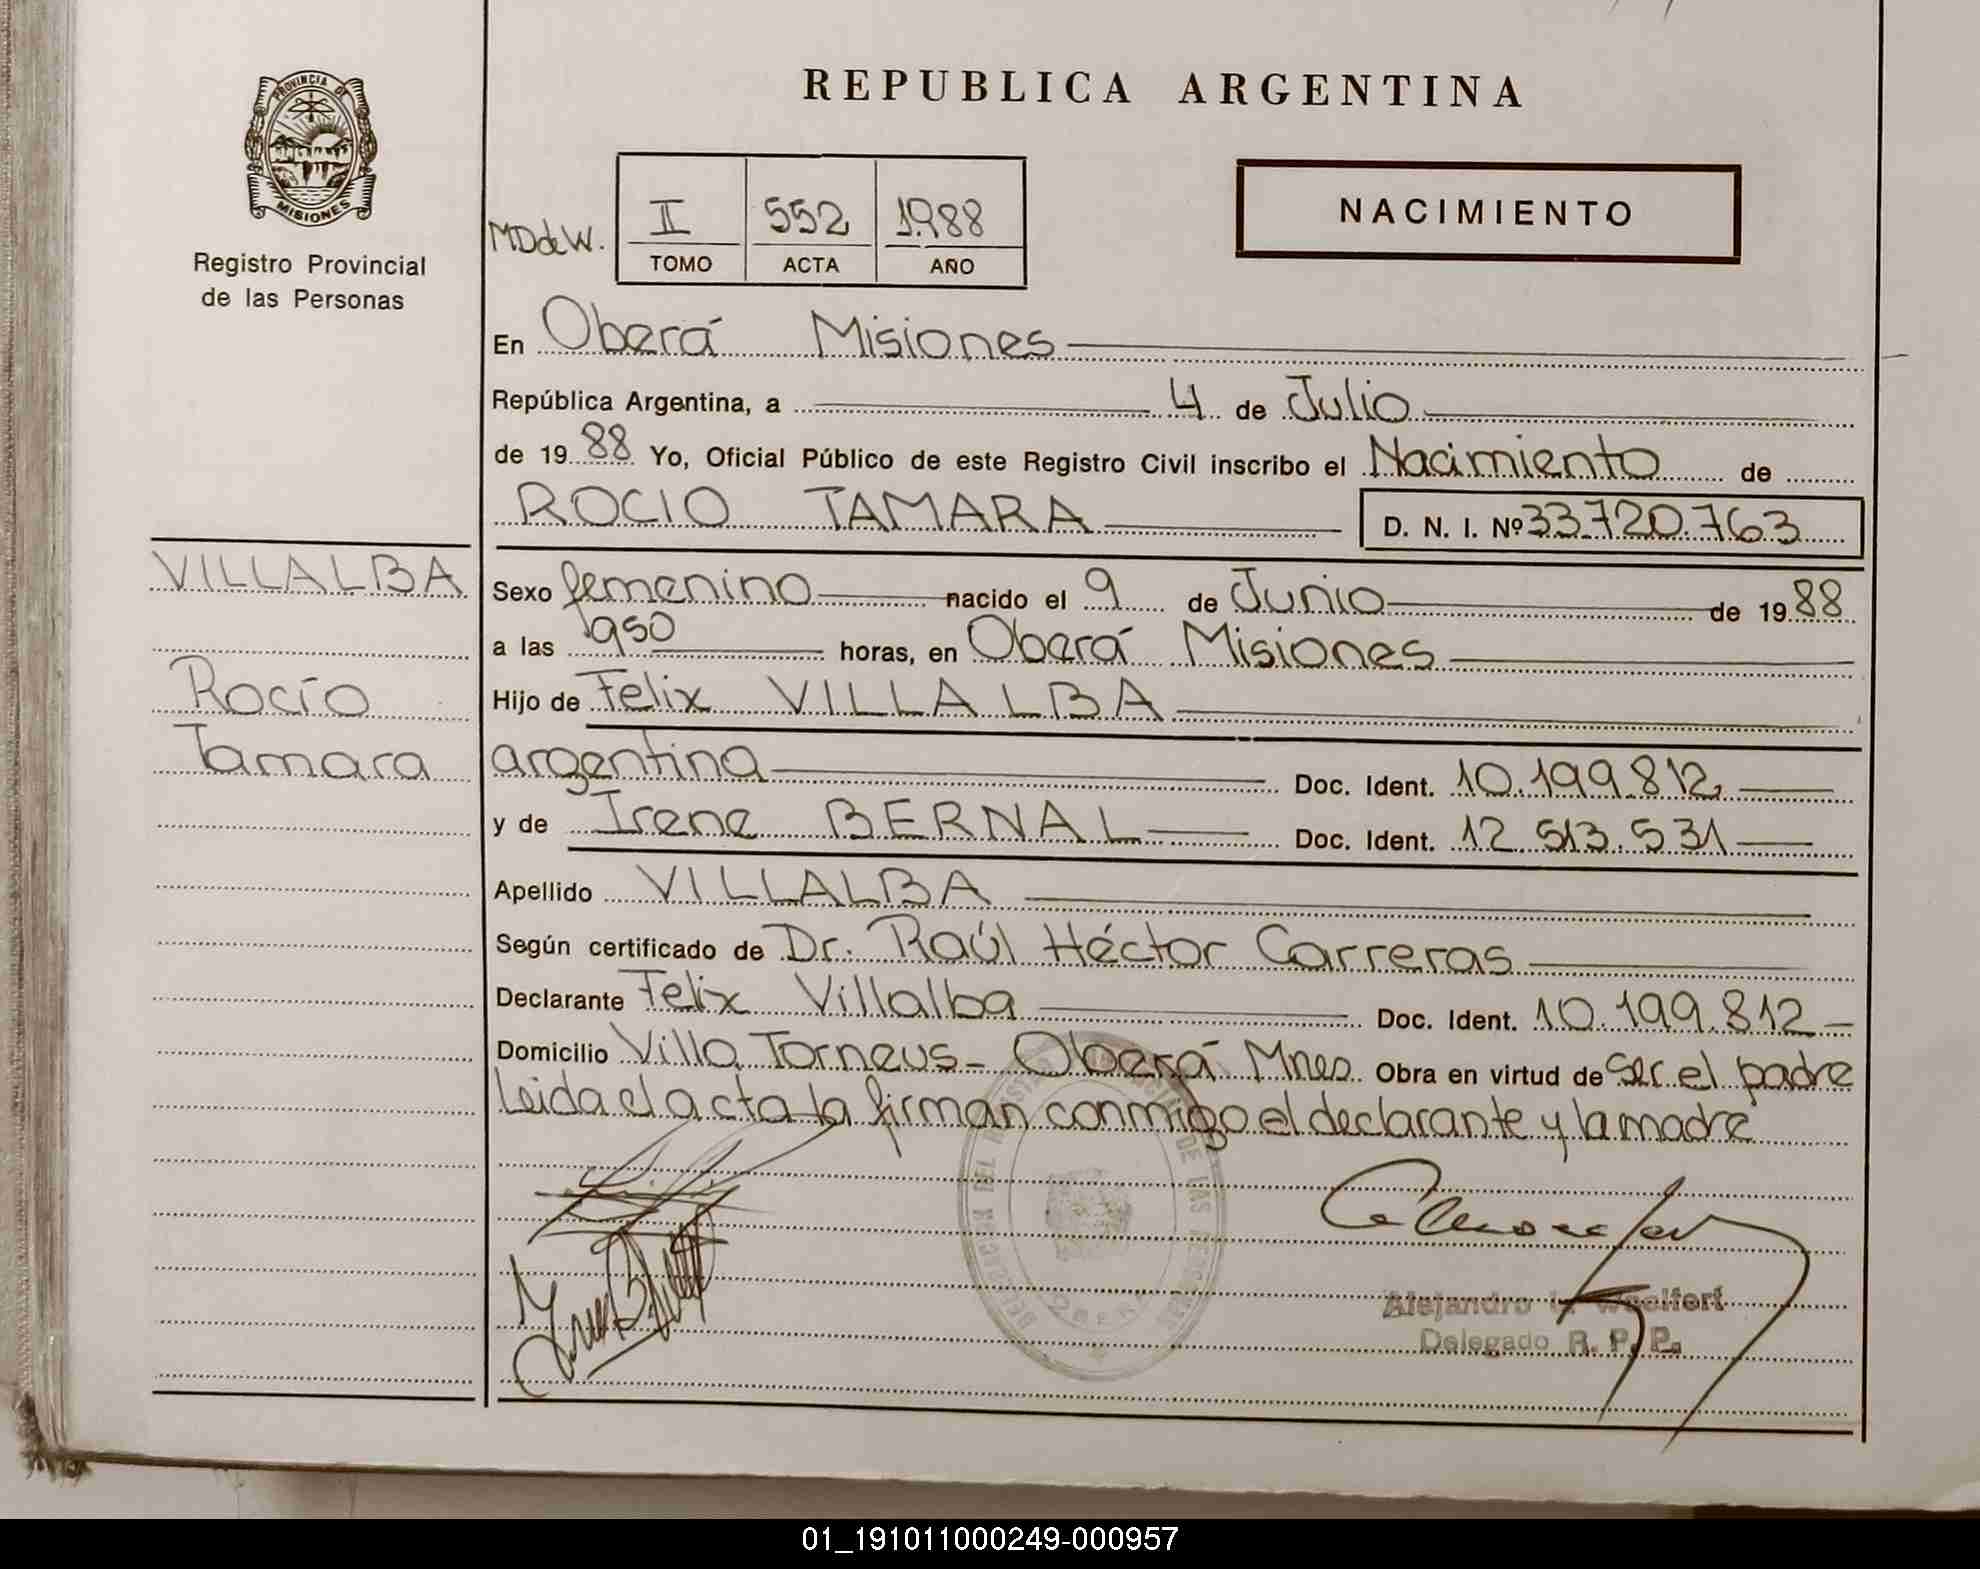 REPUBLICA ARGENTINA
PROVINCIA DE
MISIONES
Registro Provincial
de las Personas
MDdeW.
II 552 1988
TOMO ACTA AÑO
NACIMIENTO
En Oberá Misiones
República Argentina, a 4 de Julio
de 1988 Yo, Oficial Público de este Registro Civil inscribo el Nacimiento de
ROCIO TAMARA D. N. I. Nº 33.720.763
VILLALBA
Rocío
Tamara
Sexo femenino nacido el 9 de Junio de 1988
a las 1950 horas, en Oberá Misiones
Hijo de Felix VILLALBA
argentina Doc. Ident. 10.199.812
y de Irene BERNAL Doc. Ident. 12.513.531
Apellido VILLALBA
Según certificado de Dr. Raúl Héctor Carreras
Declarante Felix Villalba Doc. Ident. 10.199.812
Domicilio Villa Torneus - Oberá Mnes Obra en virtud de ser el padre
Leida el acta la firman conmigo el declarante y la madre
Delegado R. P. P.
01_191011000249-000957